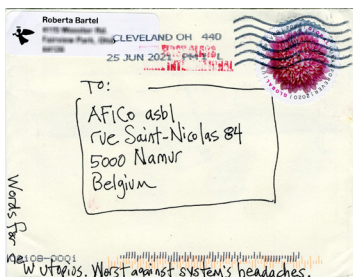 Roberta Bartel
CLEVELAND OH 440
25 JUN 2021 PM
TO:
AFiCo asbl
rue Saint-Nicolas 84
5000 Namur
Belgium
Words for
new utopias. Worst against system's headaches.